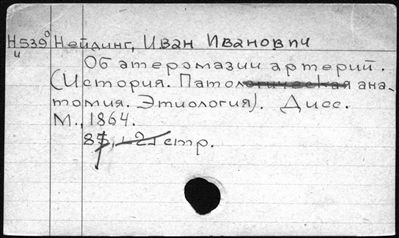 Н539 Нейдинг, Иван Иванович
и
Об атеромазии артерий.
(История. Патологическая ана-
томия. Этиология). Дисс.
М., 1864.
стр.